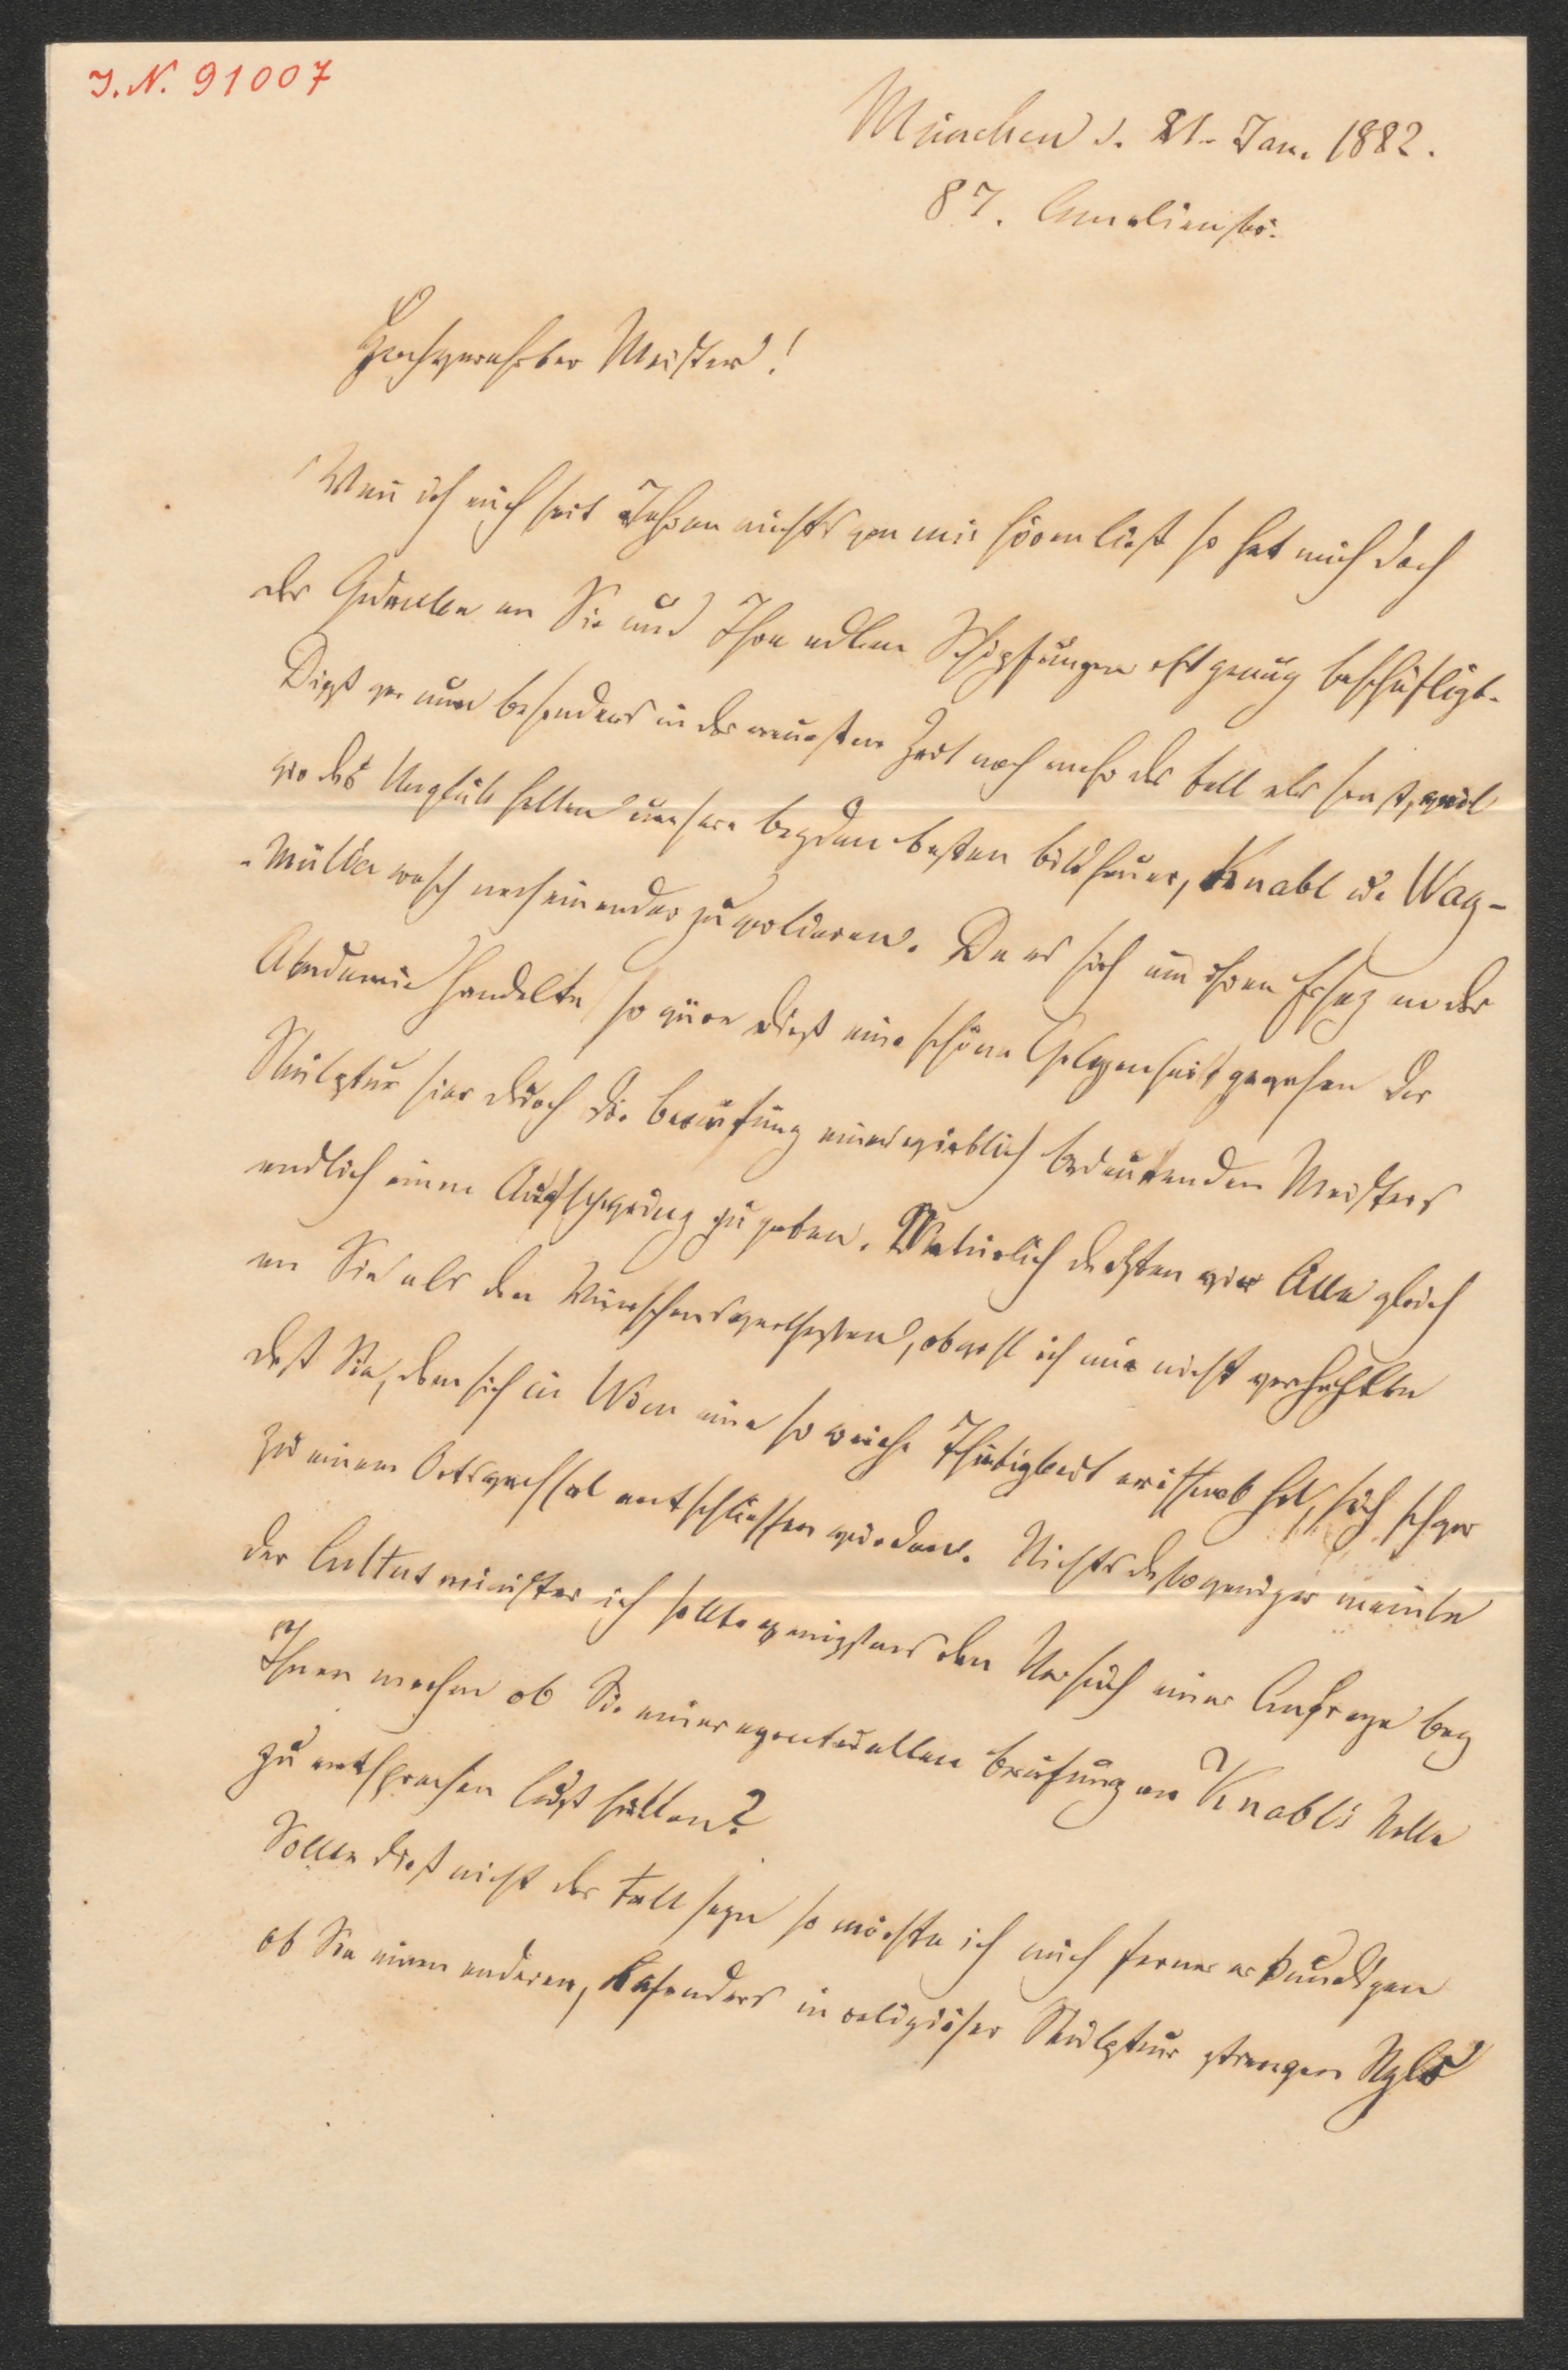 I. N. 91007
München d. 21. Jan. 1882.
87. Amalienstr.
Hochgeehrter Meister!
Wenn ich auch seit Jahren nichts von mir hören ließ so hat mich doch
der Gedanke an Sie und Ihre edlen Schöpfungen oft genug beschäftigt.
Dieß war nun besonders in der neuesten Zeit noch mehr der Fall als sonst, weil
wir das Unglück hatten unsere beyden besten Bildhauer, Knabl u. Wag-
müller rasch nacheinander zu verlieren. Da es sich um ihren Ersaz an der
Akademie handelte so wäre dieß eine schöne Gelegenheit gewesen der
Skulptur hier durch die Berufung eines wirklich bedeutenden Meisters
endlich einen Aufschwung zu geben. Natürlich dachten wir Alle gleich
an Sie als den Wünschenswerthesten, obwohl ich mir nicht verhehlte
daß Sie, dem sich in Wien eine so reiche Thätigkeit eröffnet hat, sich schwer
zu einem Ortswechsel entschliessen würden. Nichts destoweniger meinte
der Cultusminister ich sollte wenigstens den Versuch einer Anfrage bey
Ihnen machen ob Sie einer eventuellen Berufung an Knabl's Stelle
zu entsprechen Lust hätten?
Sollte dieß nicht der Fall seyn so möchte ich mich ferner erkundigen
ob Sie einen anderen, besonders in religiöser Skulptur strengen Styls